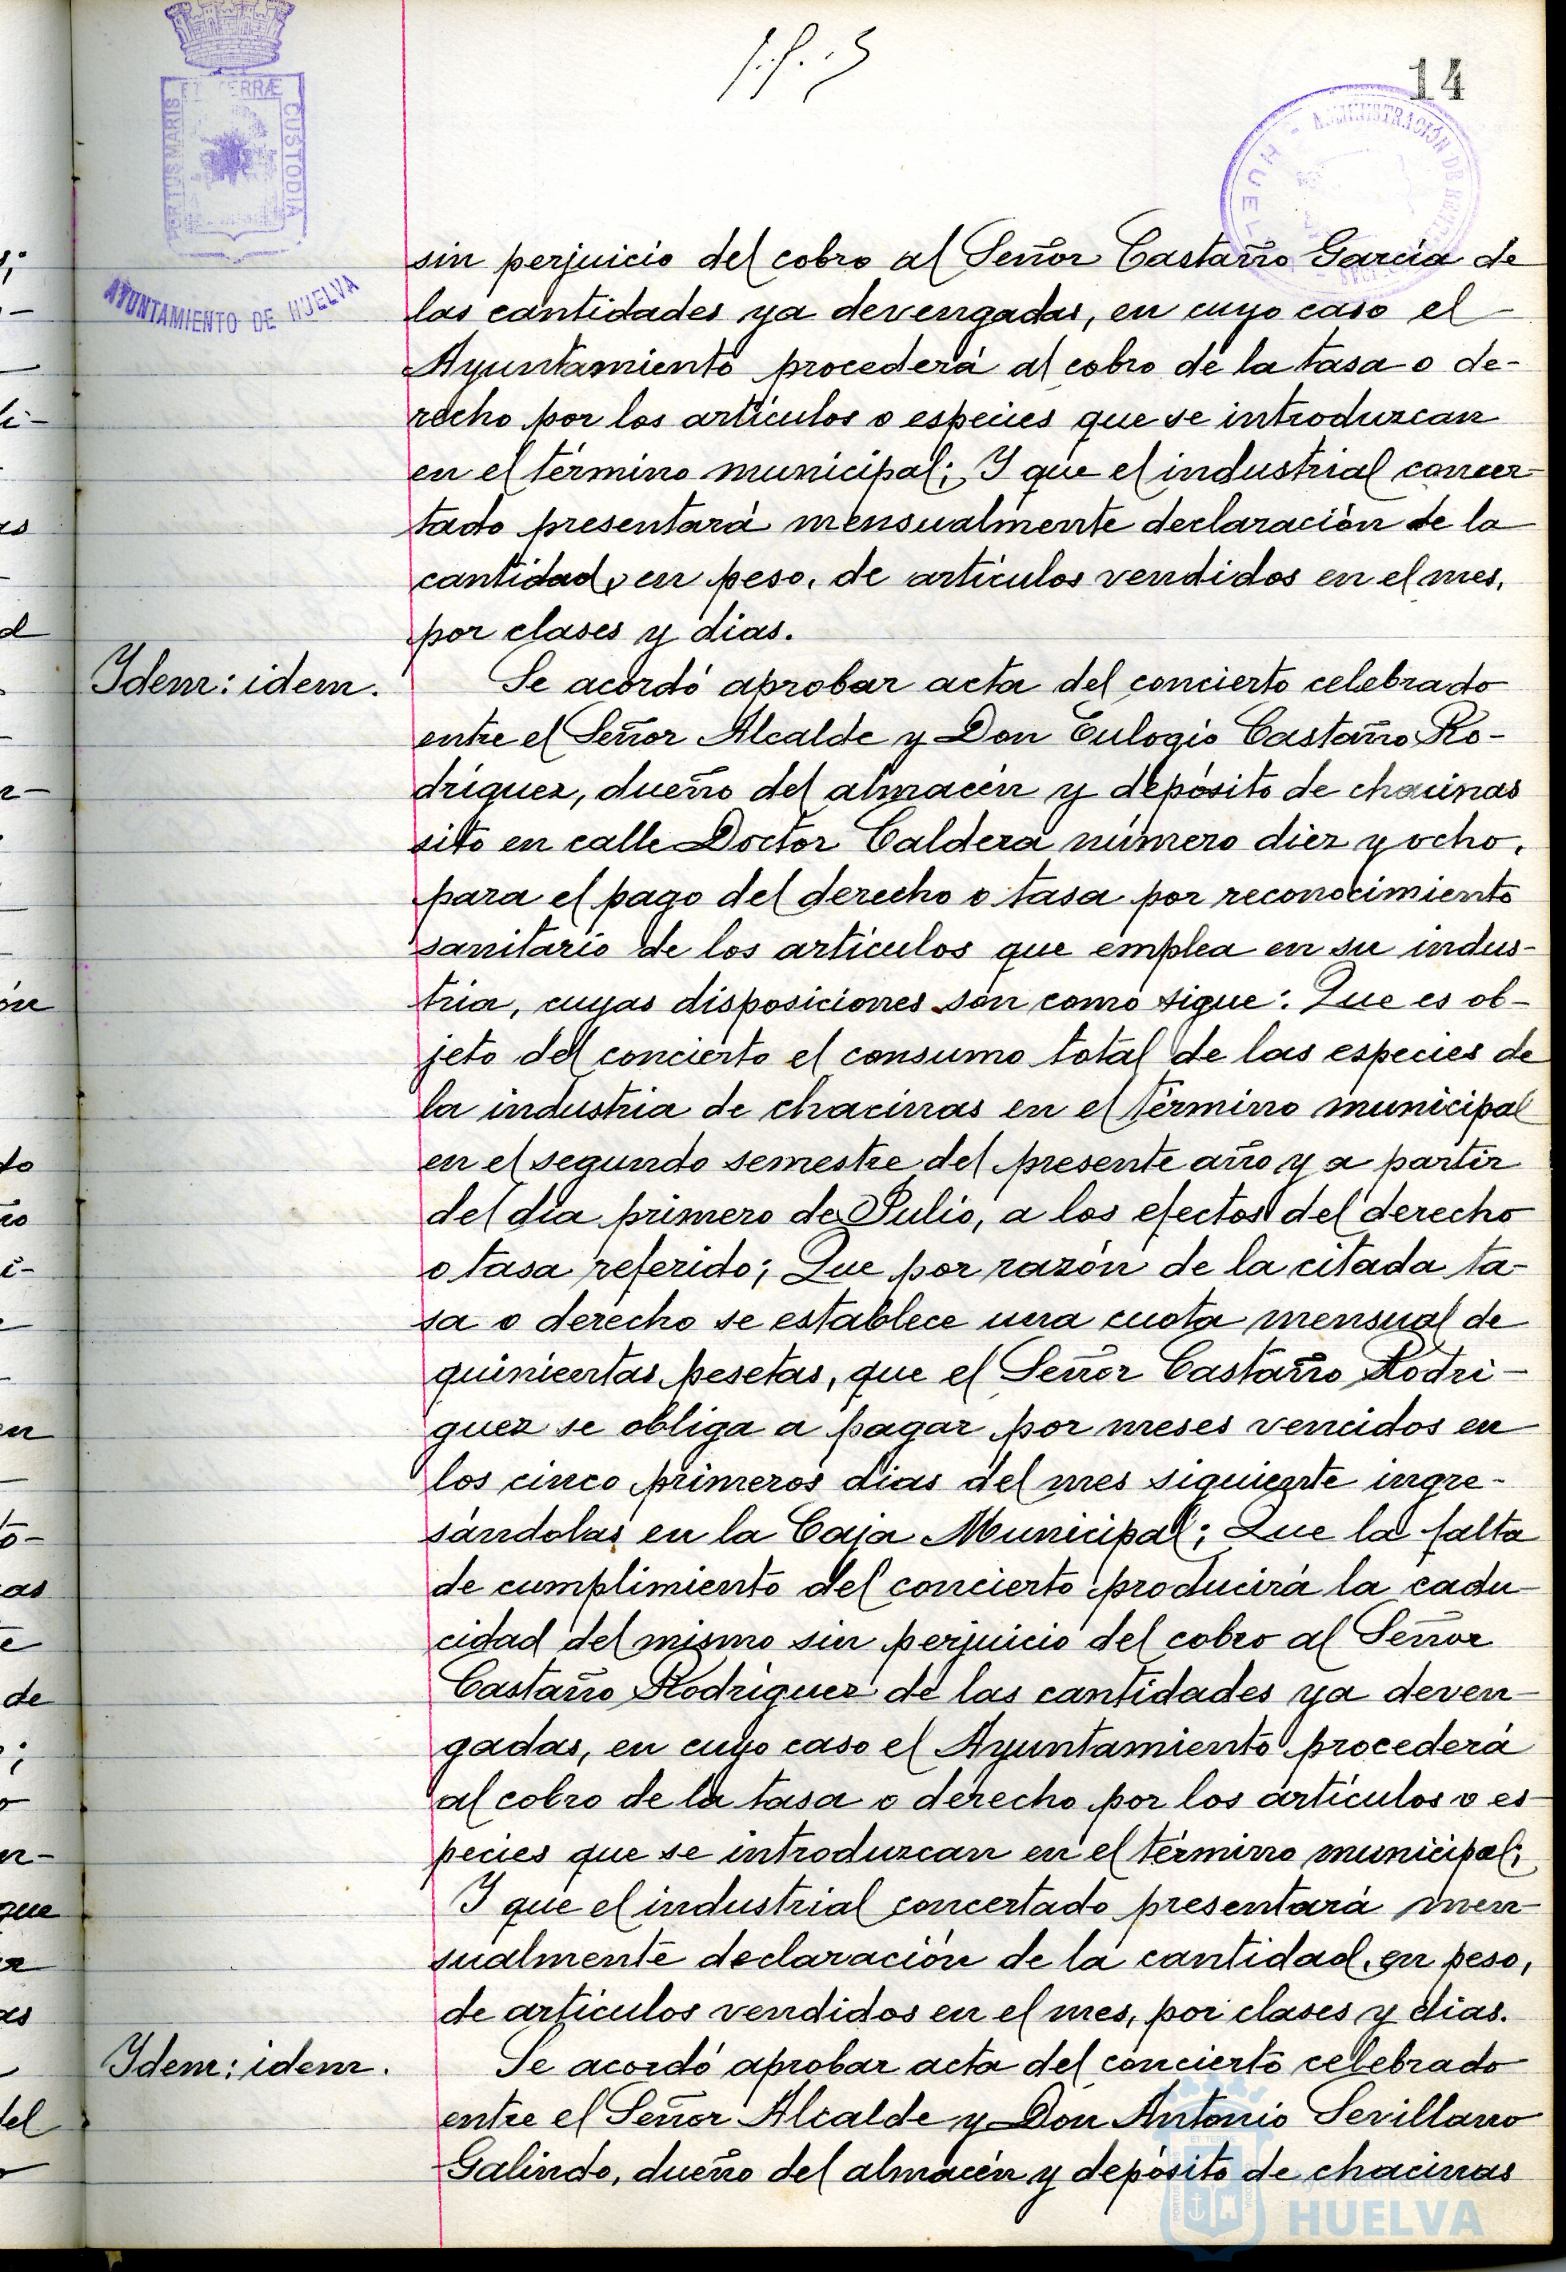 14
ET TERRÆ
PORTUS MARIS
CUSTODIA
ADMINISTRACIÓN DE
AYUNTAMIENTO DE HUELVA
sin perjuicio del cobro al Señor Castaño García de
las cantidades ya devengadas, en cuyo caso el
Ayuntamiento procederá al cobro de la tasa o de-
recho por los artículos o especies que se introduzcan
en el término municipal; Y que el industrial concer-
tado presentará mensualmente declaración de la
cantidad, en peso, de artículos vendidos en el mes,
por clases y dias.
Ydem: idem.
Se acordó aprobar acta del concierto celebrado
entre el Señor Alcalde y Don Eulogio Castaño Ro-
dríguez, dueño del almacén y depósito de chacinas
sito en calle Doctor Caldera número diez y ocho,
para el pago del derecho o tasa por reconocimiento
sanitario de los artículos que emplea en su indus-
tria, cuyas disposiciones son como sigue: Que es ob-
jeto del concierto el consumo total de las especies de
la industria de chacinas en el término municipal
en el segundo semestre del presente año y a partir
del día primero de Julio, a los efectos del derecho
o tasa referido; Que por razón de la citada ta-
sa o derecho se establece una cuota mensual de
quinientas pesetas, que el Señor Castaño Rodrí-
guez se obliga a pagar por meses vencidos en
los cinco primeros dias del mes siguiente ingre-
sándolas en la Caja Municipal; Que la falta
de cumplimiento del concierto producirá la cadu-
cidad del mismo sin perjuicio del cobro al Señor
Castaño Rodríguez de las cantidades ya deven-
gadas, en cuyo caso el Ayuntamiento procederá
al cobro de la tasa o derecho por los artículos o es-
pecies que se introduzcan en el término municipal;
Y que el industrial concertado presentará men-
sualmente declaración de la cantidad, en peso,
de artículos vendidos en el mes, por clases y dias.
Ydem: idem.
Se acordó aprobar acta del concierto celebrado
entre el Señor Alcalde y Don Antonio Sevillano
Galindo, dueño del almacén y depósito de chacinas
Ayuntamiento de
HUELVA